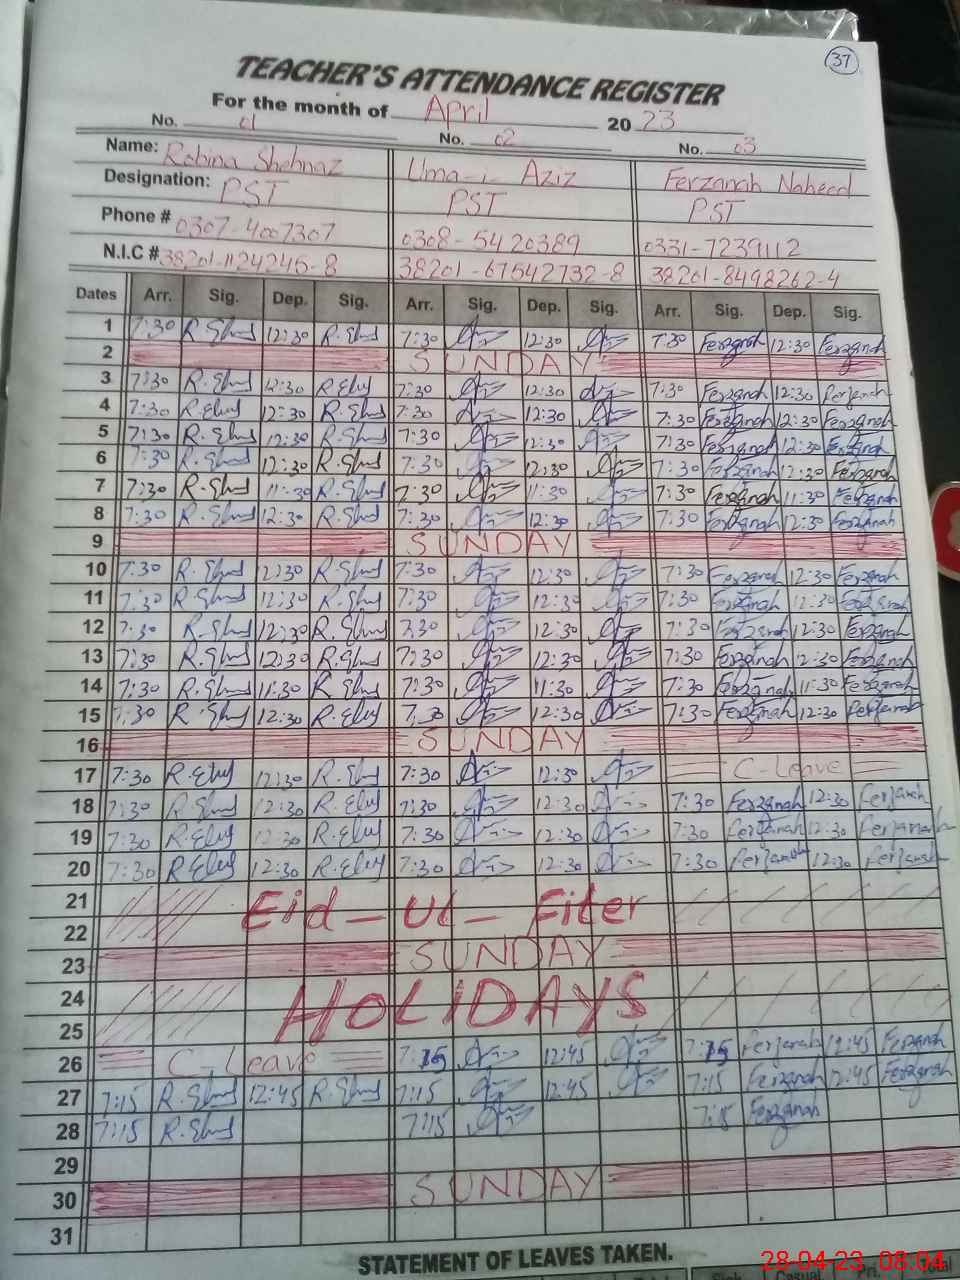 37
TEACHER'S ATTENDANCE REGISTER
For the month of April 2023
No. 01 No. 02 No. 03
Name: Robina Shehnaz Uma-i- Aziz Ferzanah Naheed
Designation: PST PST PST
Phone # 0307-4007307 0308-5420389 0331-7239112
N.I.C # 38201-1124245-8 38201-67542732-8 38201-8498262-4
Dates Arr. Sig. Dep. Sig. Arr. Sig. Dep. Sig. Arr. Sig. Dep. Sig.
1 7:30 12:30 7:30 12:30 7:30 Ferzanah 12:30 Ferzanah
2 SUNDAY
3 7:30 12:30 7:30 12:30 7:30 Ferzanah 12:30 Ferzanah
4 7:30 12:30 7:30 12:30 7:30 Ferzanah 12:30 Ferzanah
5 7:30 12:30 7:30 12:30 7:30 Ferzanah 12:30 Ferzanah
6 7:30 12:30 7:30 12:30 7:30 Ferzanah 12:30 Ferzanah
7 7:30 11:30 7:30 11:30 7:30 Ferzanah 11:30 Ferzanah
8 7:30 12:30 7:30 12:30 7:30 Ferzanah 12:30 Ferzanah
9 SUNDAY
10 7:30 12:30 7:30 12:30 7:30 Ferzanah 12:30 Ferzanah
11 7:30 12:30 7:30 12:30 7:30 Ferzanah 12:30 Ferzanah
12 7:30 12:30 7:30 12:30 7:30 Ferzanah 12:30 Ferzanah
13 7:30 12:30 7:30 12:30 7:30 Ferzanah 12:30 Ferzanah
14 7:30 11:30 7:30 11:30 7:30 Ferzanah 11:30 Ferzanah
15 7:30 12:30 7:30 12:30 7:30 Ferzanah 12:30 Ferzanah
16 SUNDAY
17 7:30 12:30 7:30 12:30 C-Leave
18 7:30 12:30 7:30 12:30 7:30 Ferzanah 12:30 Ferzanah
19 7:30 12:30 7:30 12:30 7:30 Ferzanah 12:30 Ferzanah
20 7:30 12:30 7:30 12:30 7:30 Ferzanah 12:30 Ferzanah
21 Eid-Ul-Fiter
22
23 SUNDAY
24 HOLIDAYS
25
26 C-Leave 7:15 12:45 7:15 Ferzanah 12:45 Ferzanah
27 7:15 12:45 7:15 12:45 7:15 Ferzanah 12:45 Ferzanah
28 7:15 7:15 7:15 Ferzanah
29
30 SUNDAY
31
STATEMENT OF LEAVES TAKEN.
28-04-23 08:04